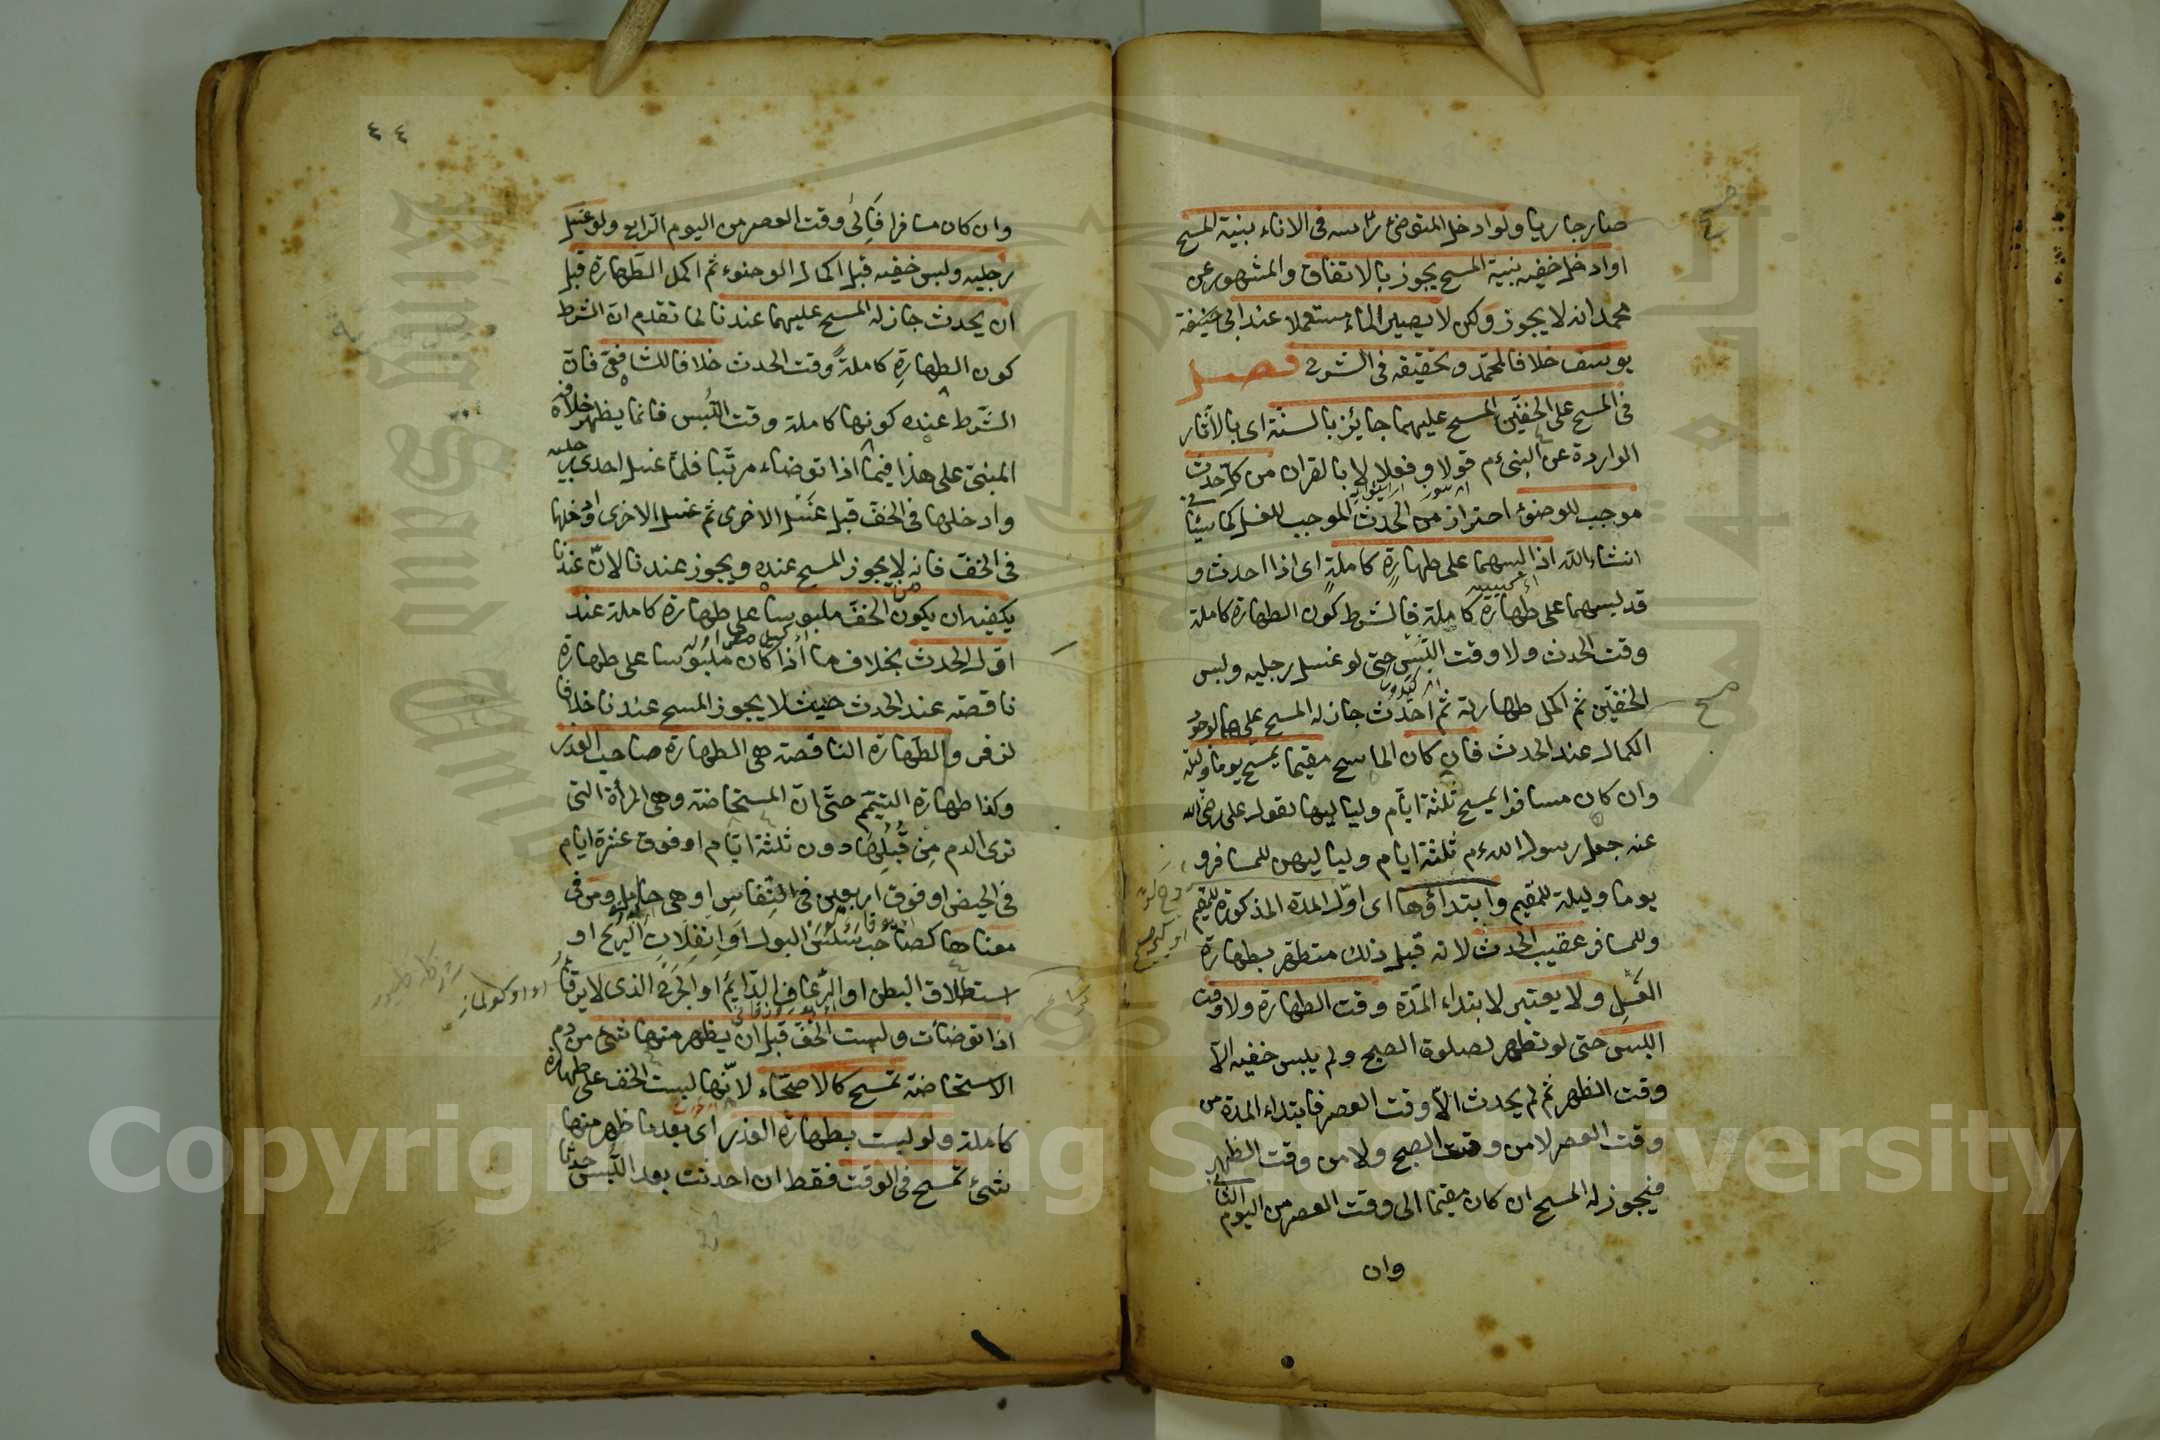 صار جاريا ولو ادخل المتوضئ راسه فى الاناء بنية المسح
او ادخل خفيه بنية المسح يجوز بالاتفاق والمشهور عن
محمد انه لا يجوز ولكن لا يصير الماء مستعملا عند ابى حنيفة
يوسف خلافا لمحمد وتحقيقه فى الشرح فصل
فى المسح على الخفين المسح عليهما جايز بالسنة اى بالآثار
الواردة عن النبى ءم قولا وفعلا لا بالقران من كل حدث
موجب للوضوء احتراز من الحدث الموجب للغسل كما سيأتى
انشاء الله اذا لبسهما على طهارة كاملة اى اذا احدث و
قد لبسهما على طهارة كاملة فالشرط كون الطهارة كاملة
وقت الحدث ولا وقت اللبس حتى لو غسل رجليه ولبس
الخفين ثم اكمل طهارته ثم احدث جاز له المسح عليهما لوجود
الكمال عند الحدث فان كان الماسح مقيما يمسح يوما وليلة
وان كان مسافرا يمسح ثلثة ايام ولياليها لقول على رضى الله
عنه جعل رسول الله ءم ثلثة ايام ولياليهن للمسافر و
يوما وليلة للمقيم وابتداؤها اى اول المدة المذكورة للمقيم
وللمسافر عقيب الحدث لانه قبل ذلك متطهر بطهارة
الغسل ولا يعتبر لابتداء المدة وقت الطهارة ولا وقت
اللبس حتى لو تطهر لصلوة الصبح ولم يلبس خفيه الا
وقت الظهر ثم لم يحدث الا وقت العصر فابتداء المدة من
وقت العصر لا من وقت الصبح ولا من وقت الظهر
فيجوز له المسح ان كان مقيما الى وقت العصر من اليوم الثانى
وان
٤٤
وان كان مسافرا فالى وقت العصر من اليوم الرابع ولو غسل
رجليه ولبس خفيه قبل اكمال الوضوء ثم اكمل الطهارة قبل
ان يحدث جاز له المسح عليهما عندنا لما تقدم ان الشرط
كون الطهارة كاملة وقت الحدث خلافا للشافعى فان
الشرط عنده كونها كاملة وقت اللبس فانما يظهر خلافه
المبنى على هذا فيما اذا توضاء مرتبا فلما غسل احدى رجليه
وادخلها فى الخف قبل غسل الاخرى ثم غسل الاخرى وادخلها
فى الخف فانه لا يجوز المسح عنده ويجوز عندنا لان عندنا
يكفيه ان يكون الخف ملبوسا على طهارة كاملة عند
اول الحدث بخلاف ما اذا كان ملبوسا على طهارة
ناقصة عند الحدث حيث لا يجوز المسح عندنا خلافا
لزفر والطهارة الناقصة هى الطهارة صاحب العذر
وكذا طهارة التيمم حتى ان المستحاضة وهى المرأة التى
ترى الدم من قبلها دون ثلثة ايام او فوق عشرة ايام
فى الحيض او فوق اربعين فى النفاس او هى حامل ومن فى
معناها كصاحب سلس البول او انفلات الريح او
استطلاق البطن او الرعاف الدايم او الجرح الذى لا يرقأ
اذا توضأت ولبست الخف قبل ان يظهر منها شئ من دم
الاستحاضة تمسح كالاصحاء لانها لبست الخف على طهارة
كاملة ولو لبست بطهارة العذر اى بعد ما ظهر منها
شئ تمسح فى الوقت فقط ان احدثت بعد اللبس حدثا
Copyright © King Saud University